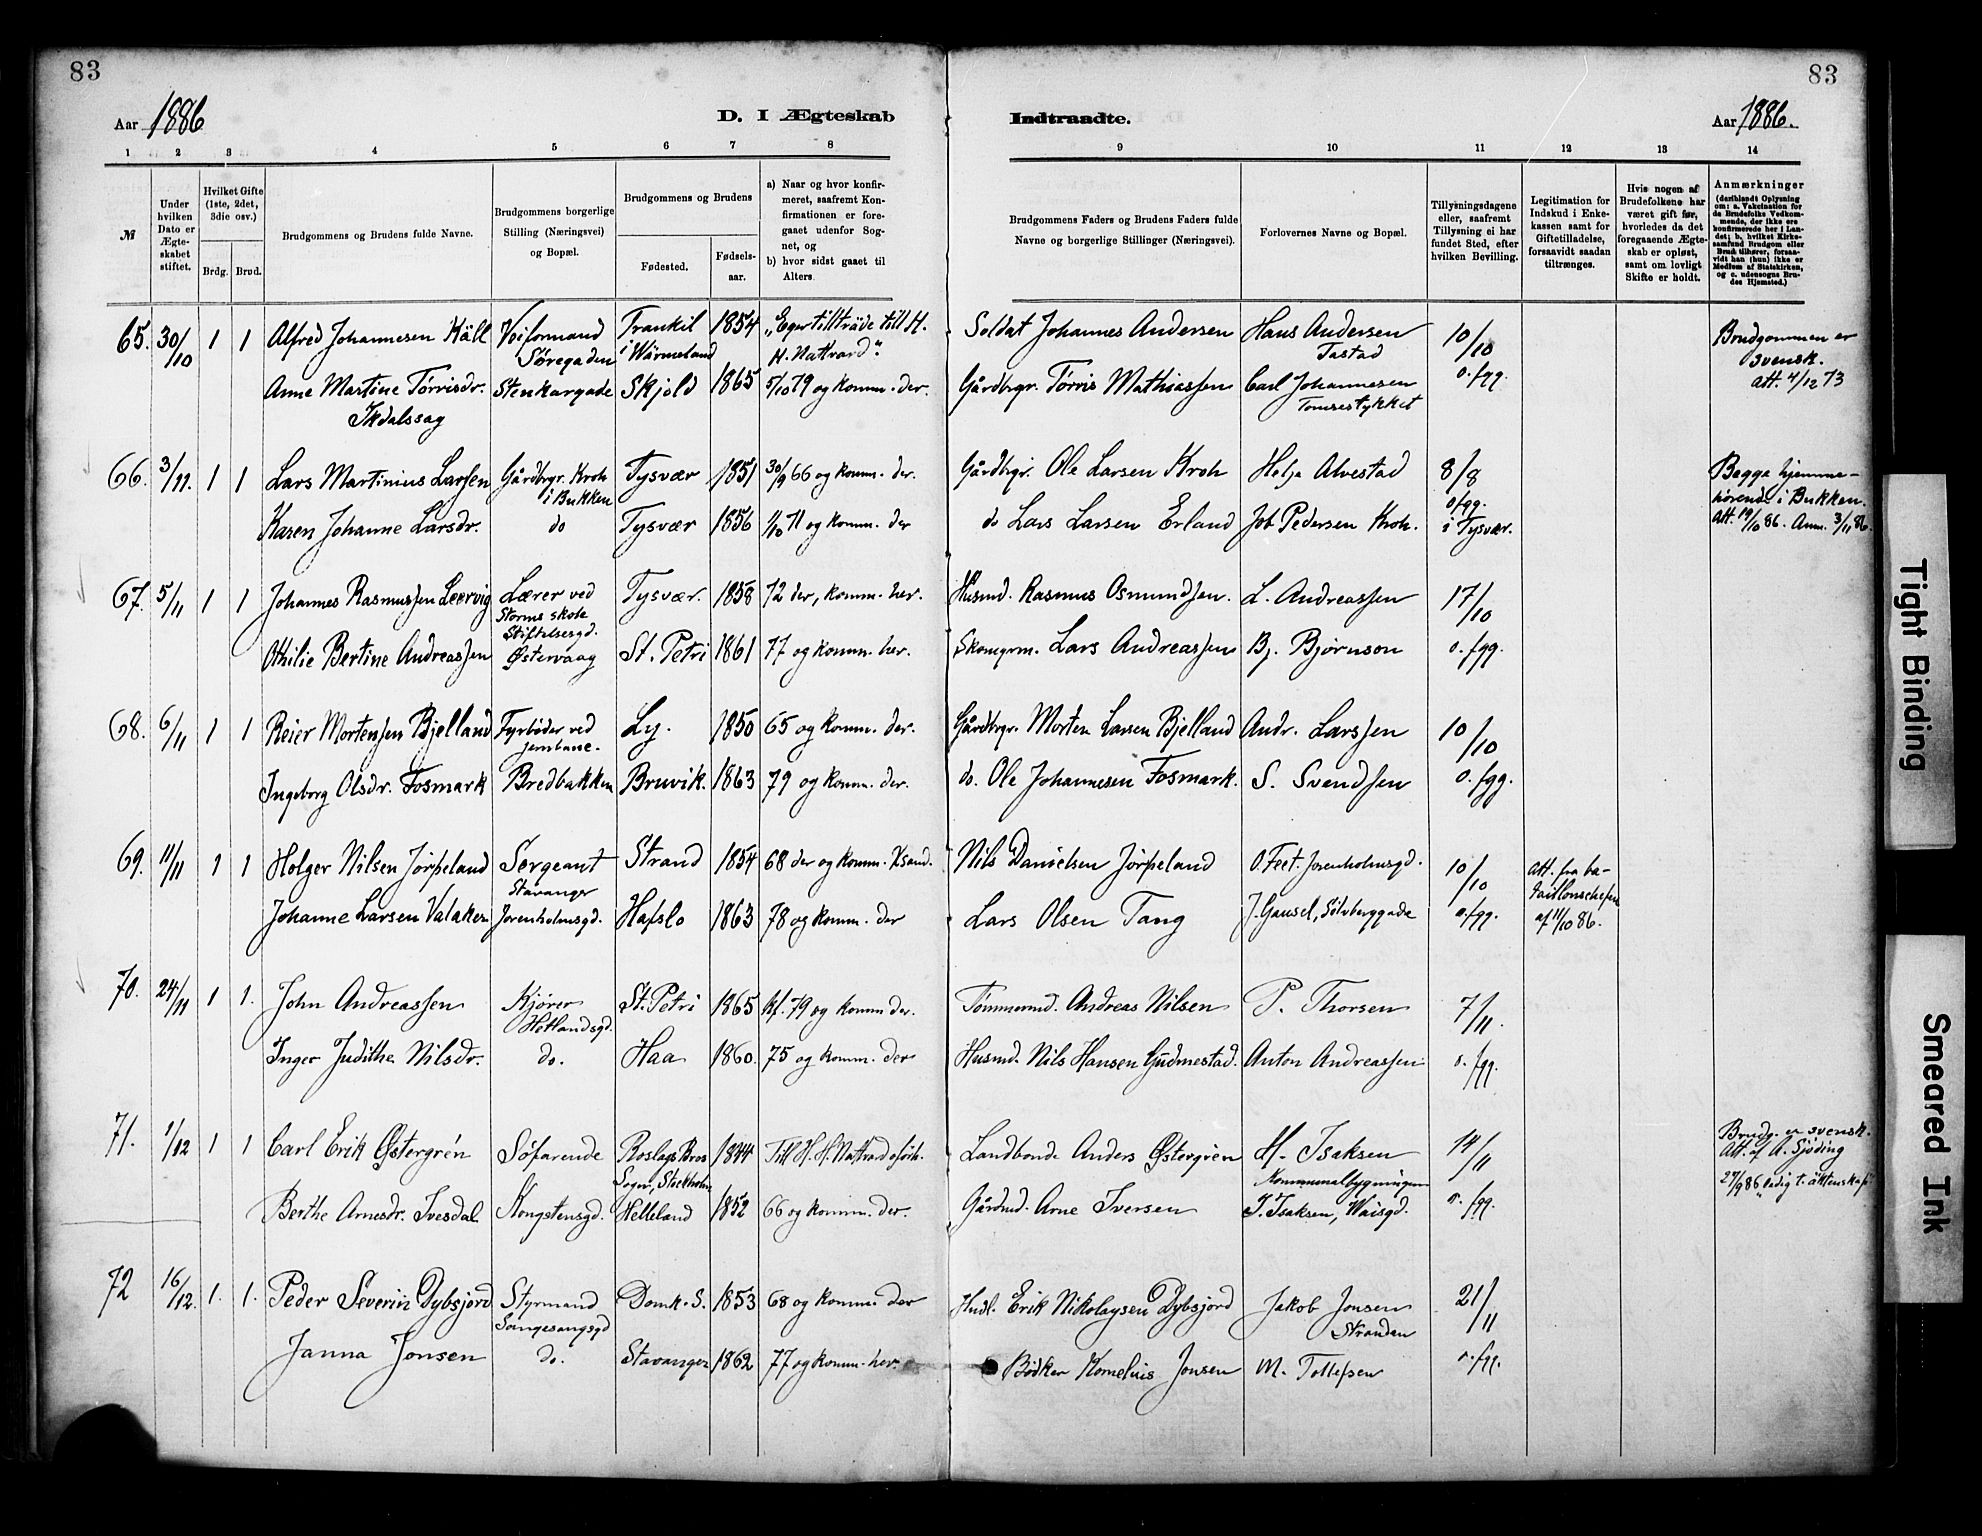 83
83
Aar 1886
D. I Ægteskab
Indtraadte.
Aar 1886.
1 2 3 4 5 6 7 8 9 10 11 12 13 14
№
Under hvilken Dato er Ægteskabet stiftet.
Hvilket Gifte (1ste, 2det, 3die osv.)
Brdg. Brud.
Brudgommens og Brudens fulde Navne.
Brudgommens borgerlige Stilling (Næringsvei) og Bopæl.
Brudgommens og Brudens
Fødested.
Fødselsaar.
a) Naar og hvor konfirmeret, saafremt Konfirmationen er foregaaet udenfor Sognet, og
b) hvor sidst gaaet til Alters.
Brudgommens Faders og Brudens Faders fulde Navne og borgerlige Stillinger (Næringsvei).
Forlovernes Navne og Bopæl.
Tillysningsdagene eller, saafremt Tillysning ei har fundet Sted, efter hvilken Bevilling.
Legitimation for Indskud i Enkekassen samt for Giftetilladelse, forsaavidt saadan tiltrænges.
Hvis nogen af Brudefolkene har været gift før, hvorledes da det foregaaende Ægteskab er opløst, samt om lovligt Skifte er holdt.
Anmærkninger (deriblandt Oplysning om: a. Vakcination for de Brudefolks Vedkommende, der ikke ere konfirmerede her i Landet; b. hvilket Kirkesamfund Brudgom eller Brud tilhører, forsaavidt han (hun) ikke er Medlem af Statskirken, og c. udensogns Brudes Hjemsted.)
65. 30/10 1 1 Alfred Johannesen Käll Veiformand Trankil 1854 „Eger tillträde till H. Soldat Johannes Andersen Hans Andersen 10/10 Brudgommen er
Søregaden i Wärmeland H. Nattvard“. Tastad svensk.
Anne Martine Tørrisdr. Stenkargade Skjold 1865 5/10 79 og komm. der. Gårdbrgr. Tørris Mathiassen Carl Johannesen o. fgg. Att. 4/12 73
Ikdalssag Tomsestykket
66. 3/11. 1 1 Lars Martinius Larsen Gårdbrgr. Kroh Tysvær 1851 30/9 66 og komm. der. Gårdbrgr. Ole Larsen Kroh Helje Alvestad 8/8 Begge hjemme-
i Bukken hörende i Bukken.
Karen Johanne Larsdr. do Tysvær 1856 1/10 71 og komm. der do Lars Larsen Erland Job Pedersen Kroh. o/fgg. i Tysvær. Att. 19/10 86. Anm. 3/11 86.
67. 5/11 1 1 Johannes Rasmussen Leervig Lærer ved Tysvær. 1858 72 der, komm. her. Husmd. Rasmus Osmundsen. L. Andreassen 17/10
Storms skole
Stiftelsesgd.
Othilie Bertine Andreassen Østervaag St. Petri 1861 77 og komm. her. Skomgrm. Lars Andreassen Bj. Bjørnson o. fgg.
68. 6/11 1 1 Reier Mortensen Bjelland Fyrbøder ved Ly. 1850 65 og komm. der. Gårdbrgr. Morten Larsen Bjelland Andr. Larssen 10/10
jernbane.
Ingeborg Olsdr. Fosmark Bredbakken Bruvik. 1863 79 og komm. der. do. Ole Johannesen Fosmark. S. Svendsen o. fgg.
69. 11/11 1 1 Holger Nilsen Jørpeland Sergeant Strand 1854 68 der og komm. Ksand. Nils Danielsen Jørpeland O. Feet. Jorenholmsgd. 10/10 Att. fra ba-
Stavanger taillonschefen
Johanne Larsen Valaker Jorenholmsgd. Hafslo 1863 78 og komm. der Lars Olsen Tang J. Gausel, Sølvberggade o. fgg. af 11/10 86.
70. 24/11 1 1. John Andreassen Kjører St. Petri 1865 kf. 79 og komm der. Tømmermd. Andreas Nilsen P. Thorsen 7/11
Hetlandsgd.
Inger Judithe Nilsdr. do. Haa 1860. 75 og komm. der Husmd. Nils Hansen Gudmestad. Anton Andreassen o. fgg.
71. 1/12 1 1 Carl Erik Østergrén Søfarende Roslags Bro 1844 Till H. H. Nattvard Landbonde Anders Østergrén H. Isaksen 14/11 Brudg. er svensk.
Sogn, Stockholm Kommunalbygningen Att. af A. Sjöding
Berthe Arnesdr. Ivesdal Kongstensgd. Helleland 1852 66 og komm. der. Gårdmd. Arne Iversen I. Isaksen, Waisgd. o. fgg. 27/9 86 „ledig t. äktenskap“
72 16/12. 1. 1. Peder Severin Dybsjord Styrmand Domk. S. 1853 68 og komm. der Husl. Erik Nikolaysen Dybsjord Jakob Jonsen 21/11
Sangesangsgd Stranden
Janna Jonsen do. Stavanger 1862 77 og komm. her. Bødker Kornelius Jonsen M. Tollefsen o. fgg.
Tight Binding
Smeared Ink